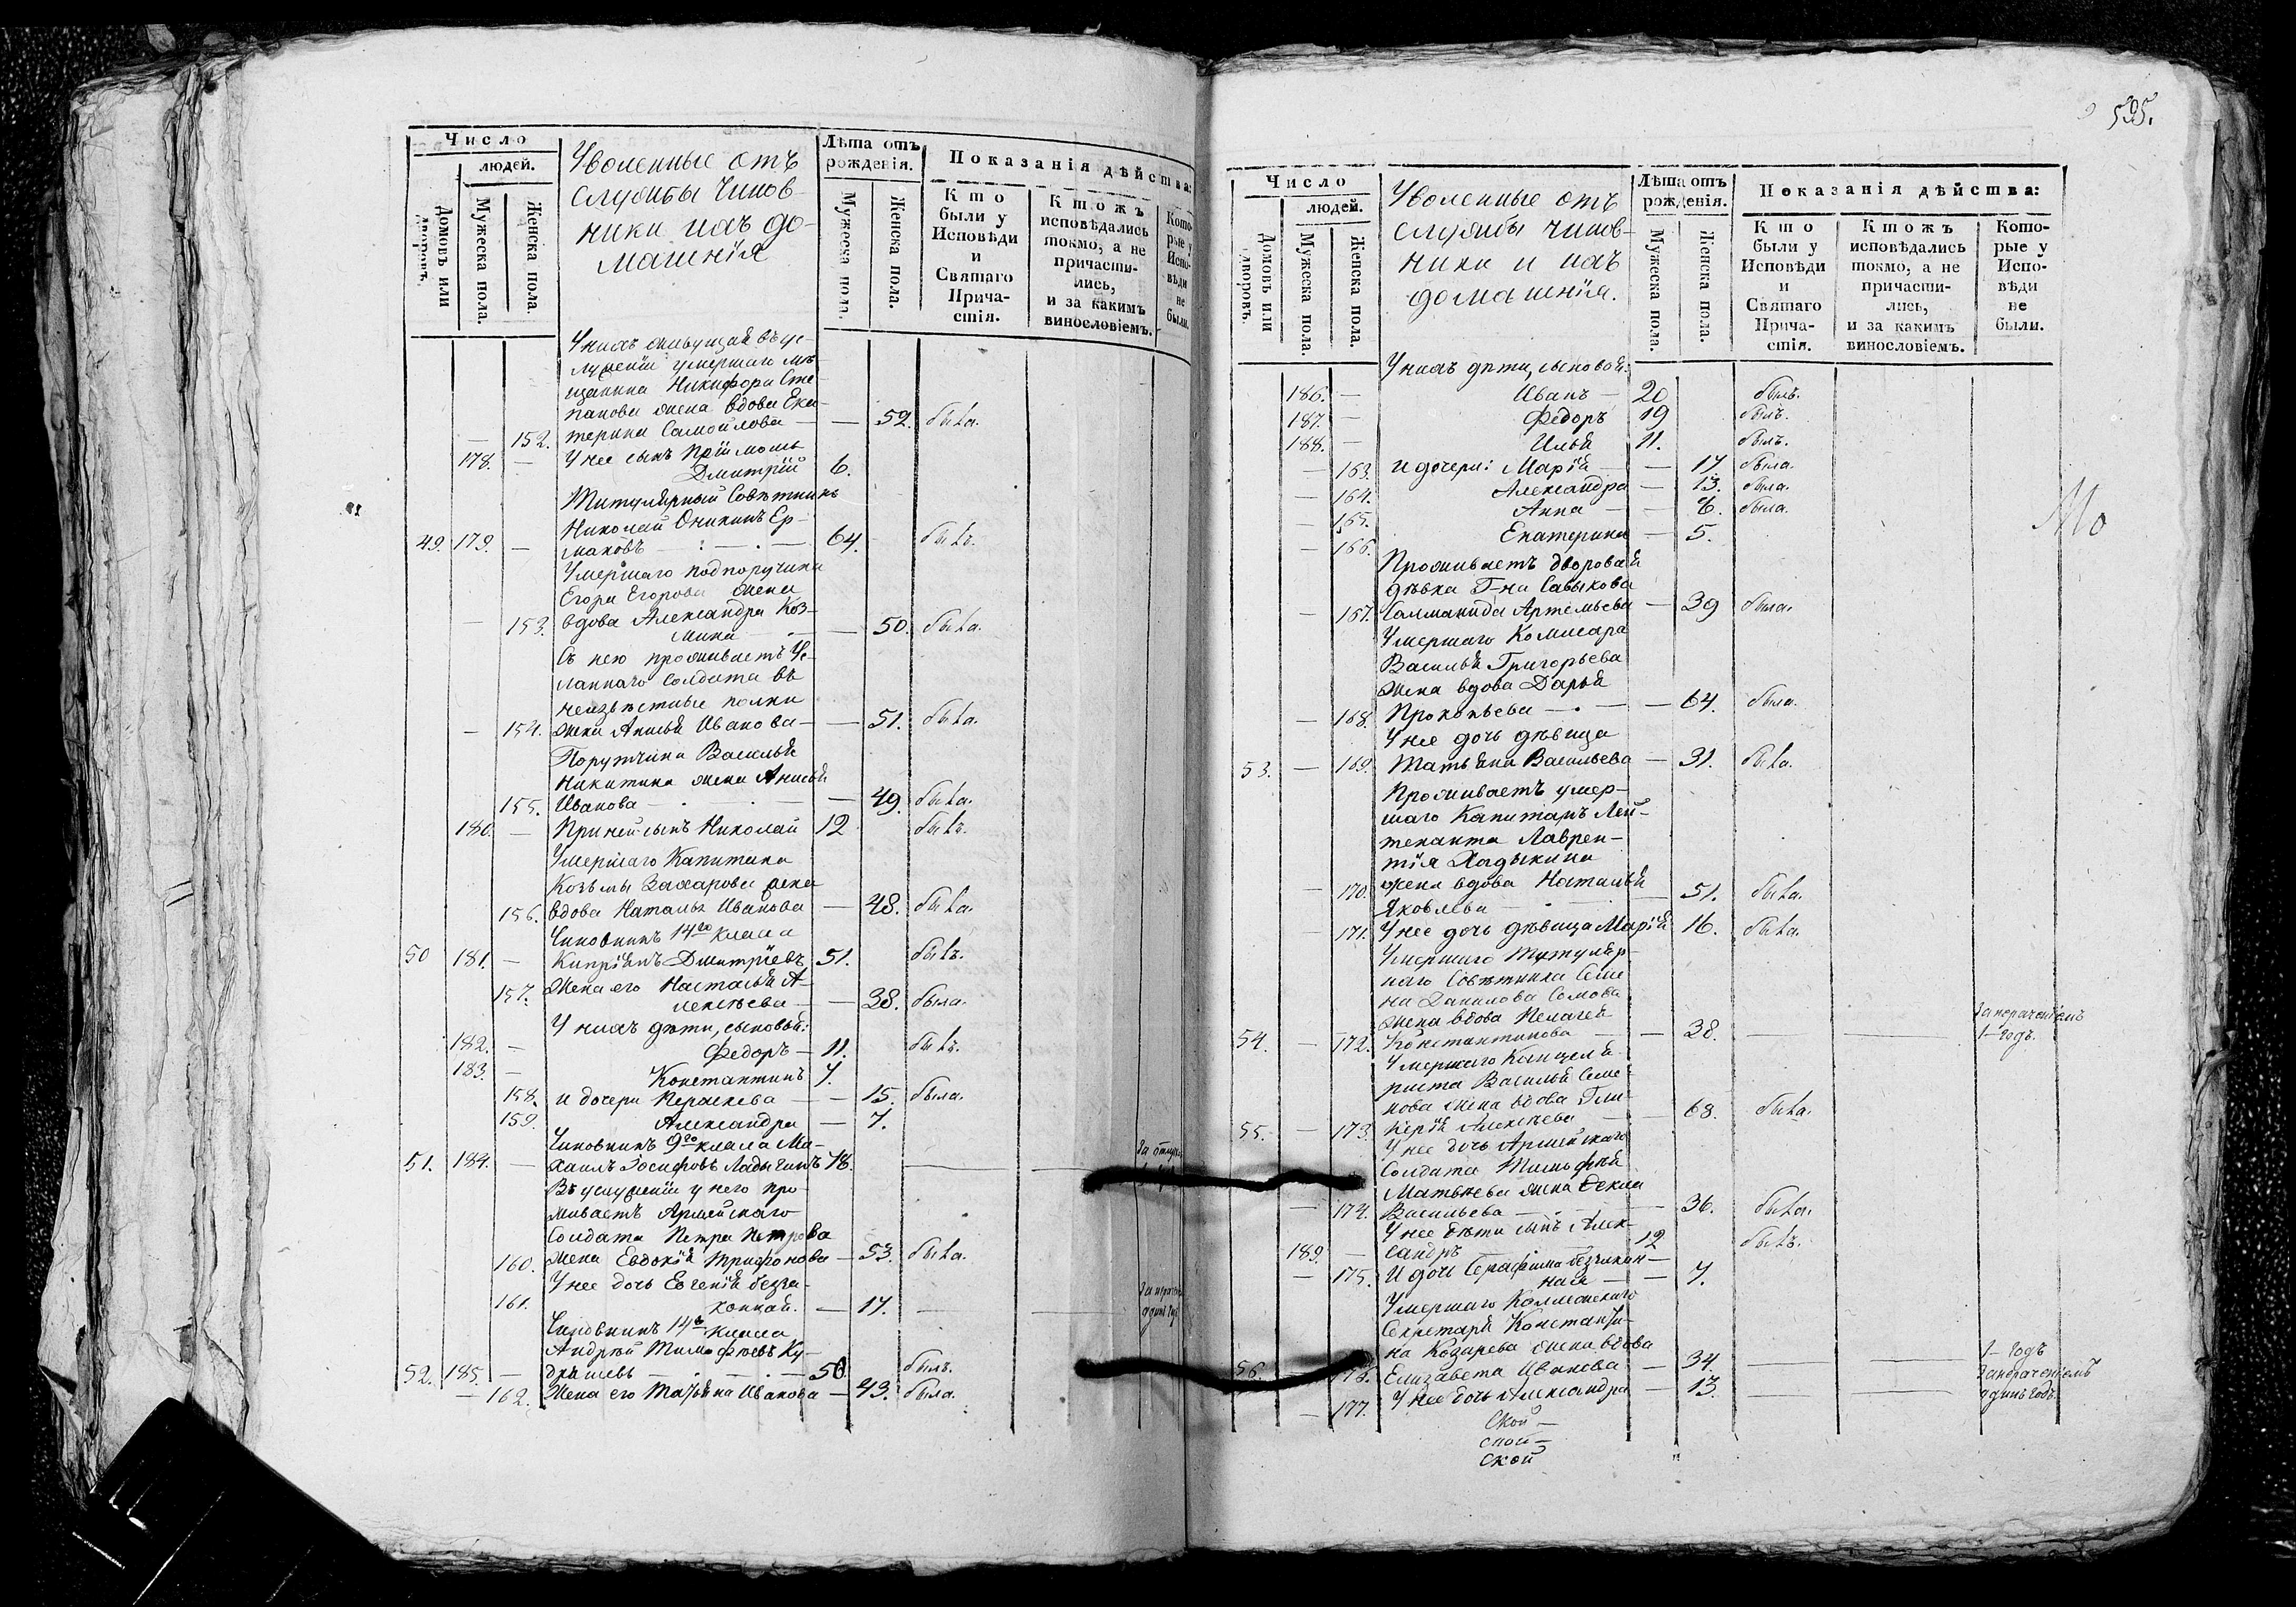 Число
людей.
Домовъ или дворовъ.
Мужеска пола.
Женска пола.
Уволенные отъ
службы Чинов-
ники ихъ до-
машнія
Лѣта отъ
рожденія.
Мужеска пола.
Женска пола.
Показанія дѣйства:
Кто
были у
Исповѣди
и
Святаго
Прича-
стія.
Ктожъ
исповѣдались
токмо, а не
причасти-
лись,
и за какимъ
винословіемъ.
Кото-
рые у
Испо-
вѣди
не
были.
У нихъ живущая въ ус-
луженіи умершаго мѣ-
щанина Никифора Сте-
панова жена вдова Ека-
— 152. терина Самойлова — — 52. была.
178. — У нее сынъ
Дмитрій 6.
Титулярный Совѣтникъ
Николай Ер-
49. 179. — маковъ — 64. былъ.
Умершаго подпоручика
Егора Егорова жена
— 153. вдова Александра Коз-
мина — — 50. была.
Съ нею проживаетъ
солдата въ
неизвѣстные полки
— 154. жена Иванова — — 51. была.
Порутчика Василья
Никитина жена Анисья
155. Иванова — — 49. была.
180. — При ней сынъ Николай 12 былъ.
Умершаго Капитана
Козьмы Захарова жена
156. вдова Наталья Иванова — 48. была.
Чиновникъ 14го класса
50 181. — Кипріянъ Дмитріевъ 51. былъ.
157. Жена его Настасья А-
лексѣева — — 38. была.
У нихъ дѣти, сыновья:
182. — Федоръ — 11. былъ.
183. — Константинъ 7.
158. и дочери — — 15. была.
159. Александра — 7.
Чиновникъ 9го класса Ми-
51. 184. — хаилъ Іосифовъ Ладыгинъ 78.
Въ услуженіи у него про-
живаетъ Армейскаго
Солдата Петра Петрова
160. жена Евдокія Трифонова — 53. была.
У нее дочь Евгенія безза-
161. конная. — 17. —
Чиновникъ 14го класса
Андрей Тимофѣевъ Ку-
52. 185. — дряшевъ — 50 былъ.
— 162. Жена его Татьяна Иванова — 43. была.
535.
Число
людей.
Домовъ или дворовъ.
Мужеска пола.
Женска пола.
Уволенные отъ
службы чинов-
ники и ихъ
домашнія.
Лѣта отъ
рожденія.
Мужеска пола.
Женска пола.
Показанія дѣйства:
Кто
были у
Исповѣди
и
Святаго
Прича-
стія.
Ктожъ
исповѣдались
токмо, а не
причасти-
лись,
и за какимъ
винословіемъ.
Кото-
рые у
Испо-
вѣди
не
были.
У нихъ дѣти, сыновья:
186. — Иванъ — 20 былъ.
187. — Федоръ 19 былъ.
188. — Илья 11. былъ.
— 163. и дочери: Марія — — 17 была.
— 164. Александра — 13. была.
165. Анна — — 6. была.
— 166. Екатерина — 5.
Мо
Проживаетъ дворовая
дѣвка Г-на Савыкова
— 167. Артемьева — 39 была.
Умершаго Комисара
Василья Григорьева
жена вдова Дарья
— 168. Прокопьева — — 64. была.
У нее дочь дѣвица
53. — 169. Татьяна Васильева — 31. была.
Проживаетъ умер-
шаго Капитанъ Лей-
тенанта Лаврен-
тія Ладыкина
— 170. жена вдова Наталья
Яковлева — — 51. была.
— 171. У нее дочь дѣвица Марія 16. была.
Умершаго Титуляр-
наго Совѣтника Семе-
на Данилова Сомова
жена вдова Пелагея
54. — 172. Константинова — — 38. — 1-годъ.
Умершаго Канцеля-
риста Василья Семе-
нова жена вдова Гли-
55. — 173. керія Алексѣева — — 68. была.
У нее дочь Армейскаго
Солдата Тимофея
Матвѣева жена Фекла
— 174. Васильева — — 36. была.
У нее дѣти сынъ Алек-
189. — сандръ 12 былъ.
— 175. И дочь Серафима беззакон-
ная — — 7.
Умершаго Коллежскаго
Секретаря Константи-
на Козырева жена вдова
56. Елизавета Иванова — 34. — — 1-годъ
— 177. У нее дочь Александра — 13. — — одинъ годъ.
Ской —
ской —
ской